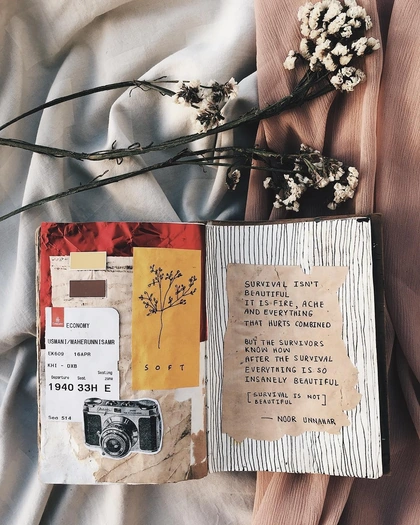 ECONOMY
USMANI/MAHERUNNISAMR
EK609 16APR
KHI - DXB
Departure Seat Boarding zone
1940 33H E
Seq 514
SOFT
SURVIVAL ISN'T
BEAUTIFUL
IT IS FIRE, ACHE
AND EVERYTHING
THAT HURTS COMBINED
BUT THE SURVIVORS
KNOW HOW
AFTER THE SURVIVAL
EVERYTHING IS SO
INSANELY BEAUTIFUL
[SURVIVAL IS NOT
BEAUTIFUL]
— NOOR UNNAHAR